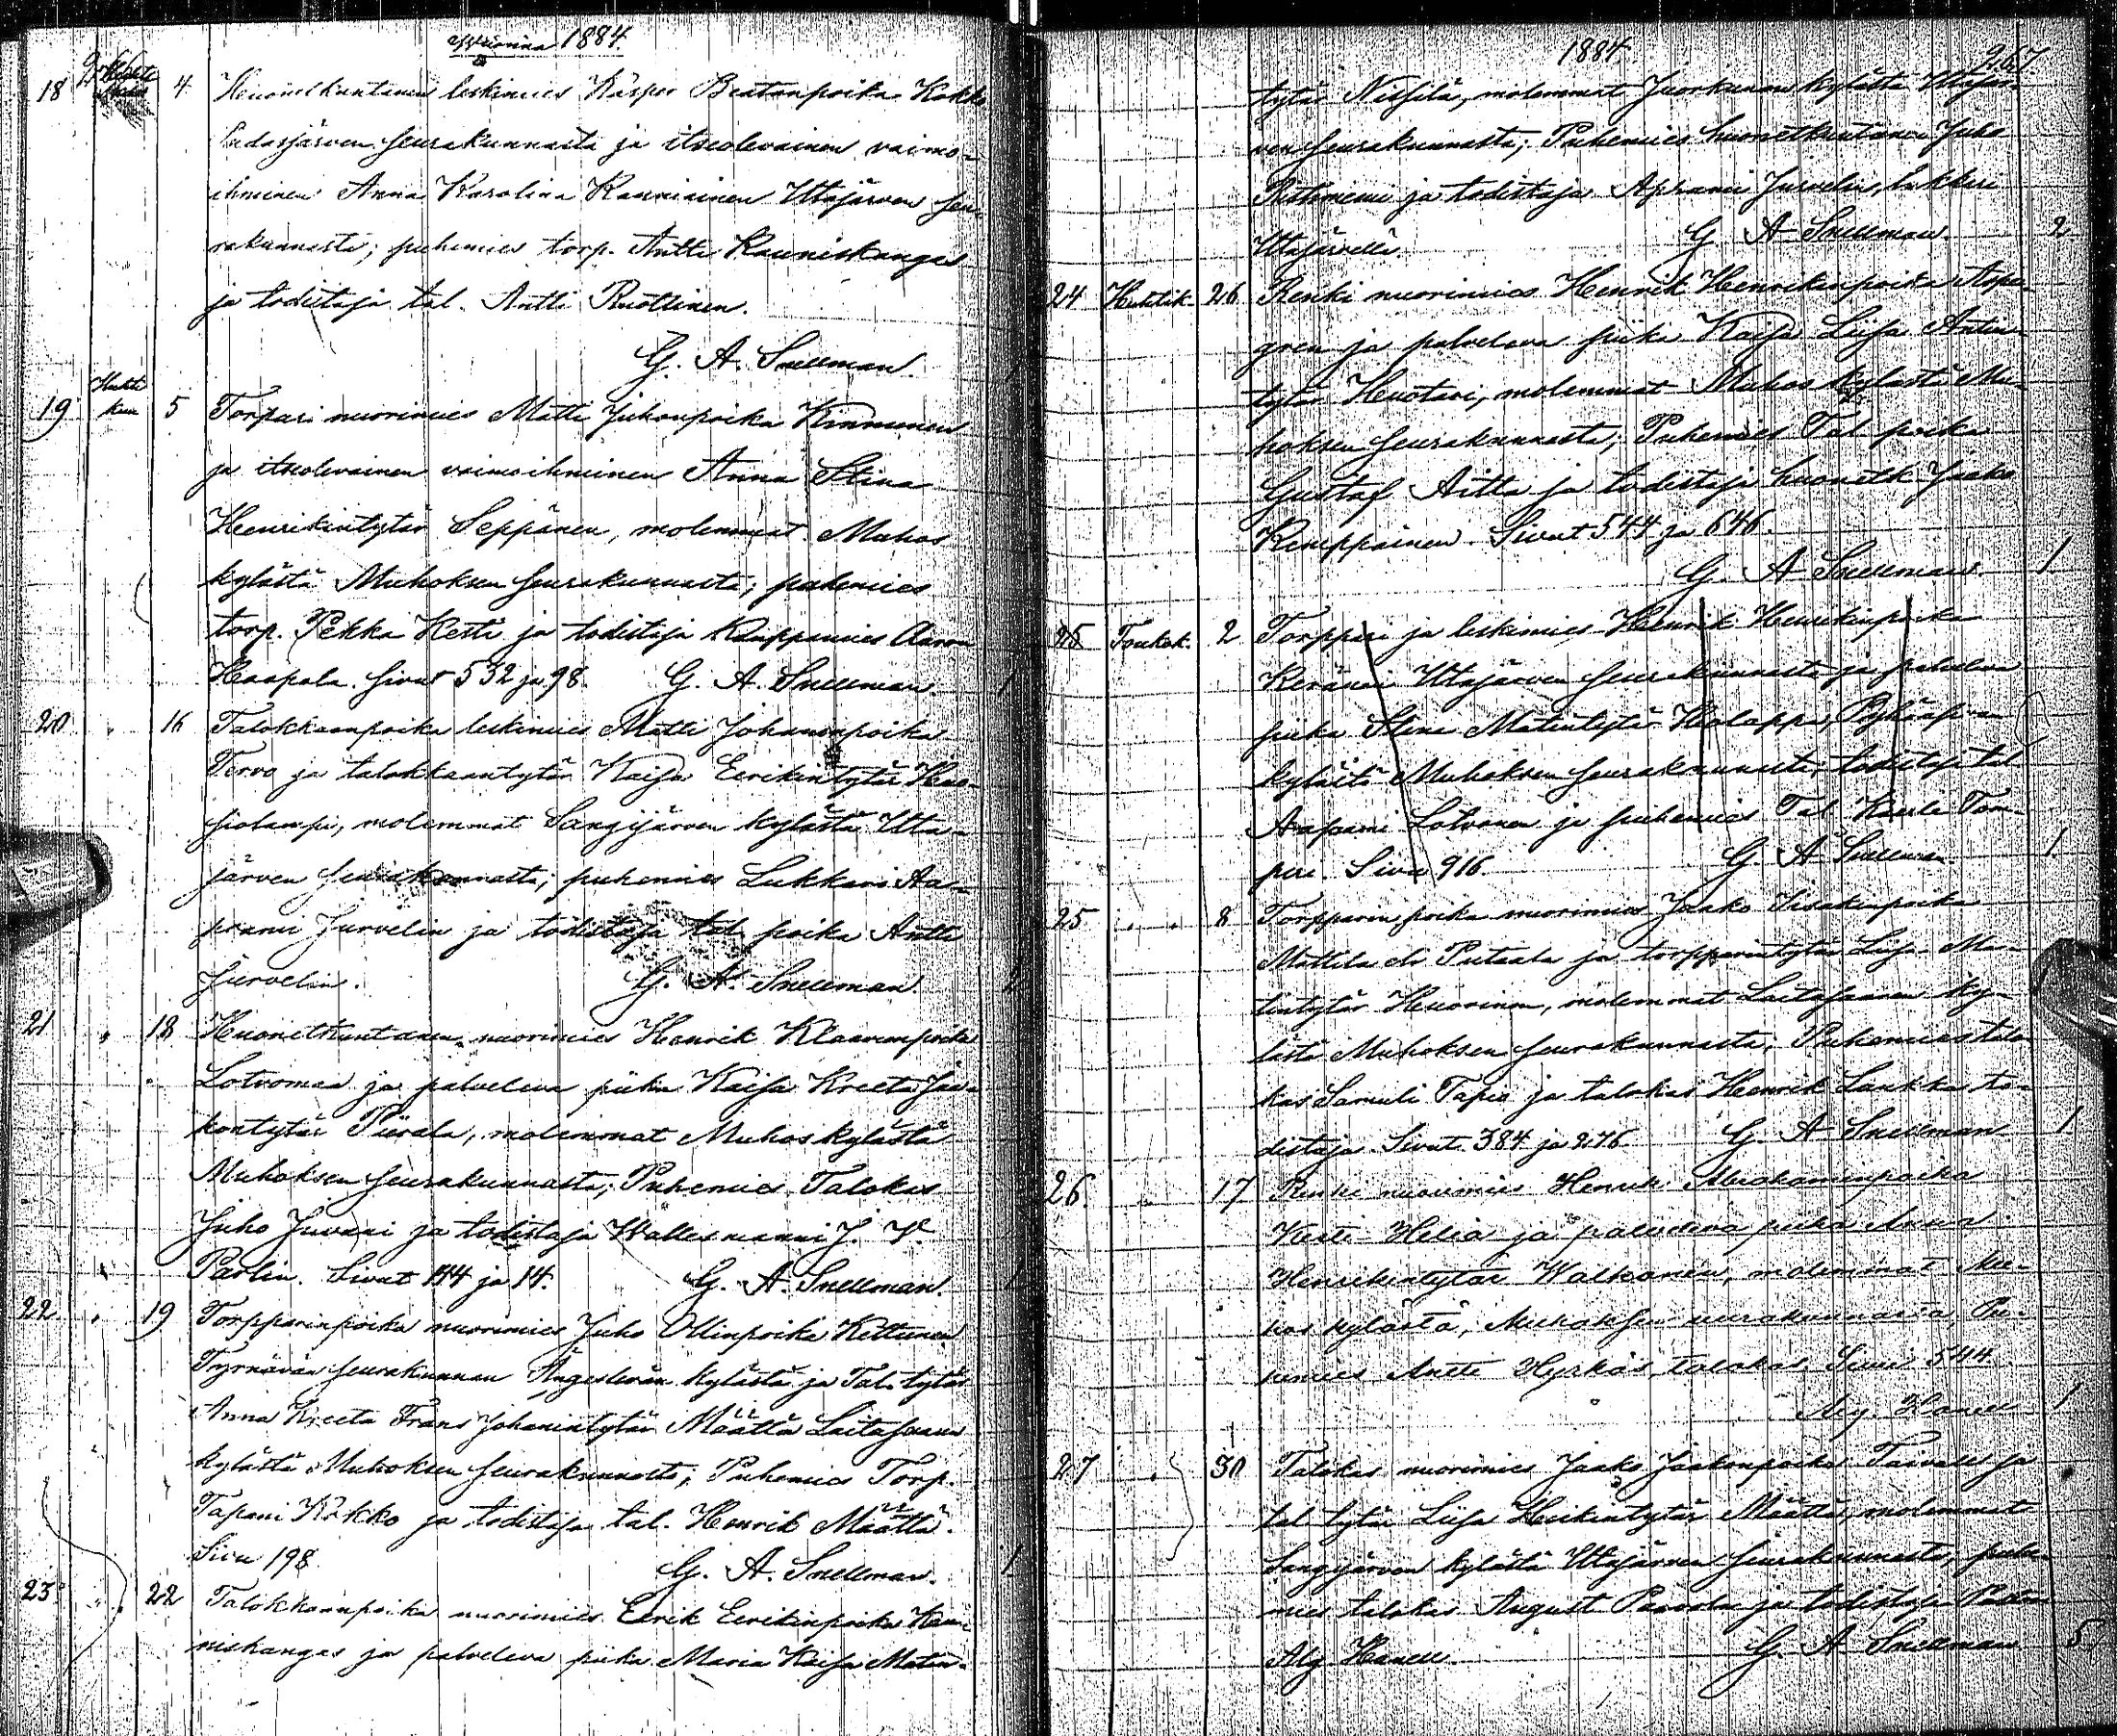 Vuonna 1884.
18 Huhti kuu 4 Huonetkuntainen leskimies Kasper Beatanpoika Kokko
Pudasjärven seurakunnasta ja itseolevainen vaimo-
ihminen Anna Karolina Kauniainen Utajärven seu-
rakunnasta; puhemies torp. Antti Kauniskangas
ja todistaja tal. Antti Ruottinen.
G. A. Snellman.
19 Huhti kuu 5 Torpari nuorimies Matti Juhonpoika Kinnunen
ja itseolevainen vaimoihminen Anna Stina
Henrikintytär Seppänen, molemmat Muhos
kylästä Muhoksen seurakunnasta; puhemies
torp. Pekka Kesti ja todistaja Kauppamies Aaron
Haapala. Sivut 532 ja 98. G. A. Snellman 1
20 " 16 Talokkaanpoika leskimies Matti Johananpoika
Tervo ja talokkaantytär Kaisa Eerikintytär Huo-
siolampi, molemmat Sangijärven kylästä Uta-
järven seurakunnasta; puhemies Lukkari Aa-
prami Jurvelin ja todistaja tal. poika Antti
Jurvelin. G. A. Snellman.
21 " 18 Huonetkuntainen nuorimies Henrik Klaavunpoika
Lotvonen ja palveleva piika Kaisa Kreeta Jaa-
kontytär Piirala, molemmat Muhos kylästä
Muhoksen seurakunnasta; Puhemies Talokas
Juho Juvani ja todistaja Wallesmanni J. W.
Parlin. Sivut 144 ja 14. G. A. Snellman. 1
22 " 19 Torpparinpoika nuorimies Juho Ollinpoika Kettunen
Tyrnävän seurakunnan Ängeslevän kylästä ja Tal. tytär
Anna Kreeta Frans Johanintytär Määttä Laitasaaren
kylästä Muhoksen seurakunnasta; Puhemies Torp.
Tapani Kokko ja todistaja tal. Henrik Määttä.
Sivu 198. G. A. Snellman. 1
23 " 22 Talokkaanpoika nuorimies Eerik Eerikinpoika Kau-
niskangas ja palveleva piika Maria Kaisa Matin-
1884. 267.
tytär Niskilä, molemmat Juorkunan kylästä Utajär-
ven seurakunnasta; Puhemies huonetkuntainen Juho
Ristiniemi ja todistaja Aprami Jurvelin, lukkari
Utajärvellä. G A Snellman. 2
24 Huhtik. 26 Renki nuorimies Henrik Henrikinpoika Aspe-
gren ja palveleva piika Kaisa Liisa Antin-
tytär Heustari, molemmat Muhos kylästä Mu-
hoksen seurakunnasta; Puhemies Tal. poika
Gustaf Aitta ja todistaja huonetk Jaako
Kemppainen. Sivut 544 ja 646.
G. A Snellman. 1
25 Toukok. 2 Torppari ja leskimies Henrik Henrikinpoika
Keränen Utajärven seurakunnasta ja palveleva
piika Stina Matintytär Holappa,
kylästä Muhoksen seurakunnasta; todistaja tal
Aaprami Lotvonen ja puhemies Tal Kaarle Tam-
pere. Sivu 916. G. A Snellman 1
25 " " 8 Torpparin poika nuorimies Jaako Iisakinpoika
Mattila eli Putaala ja torpparintytär Liisa Ma-
tintytär Huovinen, molemmat Laitasaaren ky-
lästä Muhoksen seurakunnasta; Puhemies talo-
kas Samuli Tapio ja talokas Henrik Laukka to-
distaja. Sivut 384 ja 276. G. A Snellman 1
26. " 17 Renki nuorimies Henrik Abrahaminpoika
Kesti-Heliä ja palveleva piika Anna
Henrikintytär Walkonen, molemmat Mu-
hos kylästä, Muhoksen seurakunnasta; Pu-
hemies Antti Hyrkäs, talokas. Sivu 544
Alg. Hanell 1
27 " 30 Talokas nuorimies Jaako Jaakonpoika Taivalus ja
tal tytär Liisa Heikintytär Määttä, molemmat
Sangijärven kylästä Utajärven seurakunnasta; puhe-
mies talokas August Paavola ja todistaja Pastori
Alg. Hanell. G. A Snellman 5